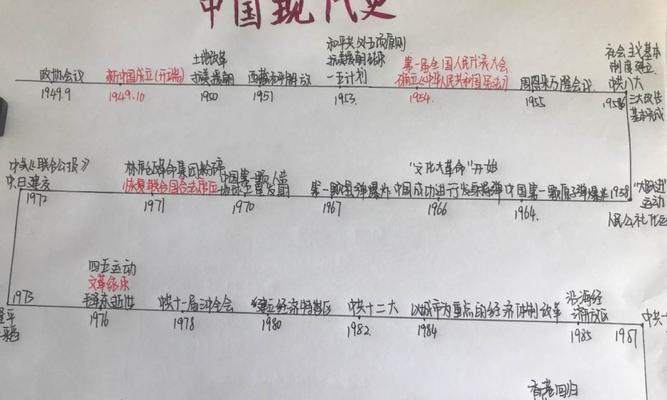 中国现代史
政协会议
1949.9
新中国成立(开端)
1949.10
土地改革
抗美援朝
1950
西藏和平解放
1951
和平共处五项原则
抗美援朝结束
一五计划
1953.
第一届全国人民代表大会
确立《中华人民共和国宪法》
1954.
周恩来万隆会议
1955
社会主义基本
制度确立
中共八大
1956
三大改造
基本完成
中美《联合公报》
中日建交
1972
林彪反革命集团粉碎
恢复联合国合法席位
1971
中国第一颗人造
地球卫星发射
1970
第一颗氢弹爆炸
1967
"文化大革命"开始
中国成功进行发导弹
1966
中国第一颗原子弹爆炸
1964.
1958
"大跃进"
运动
人民公社化运
1973
隆平
稻
四五运动
文革结束
毛泽东逝世
1976
中共十一届三中全会
1978
建立经济特区
1980
中共十二大
1982
以城市为重点的经济体制改革
1984
沿海经
济开放区
1985
1987
中共十
香港回归